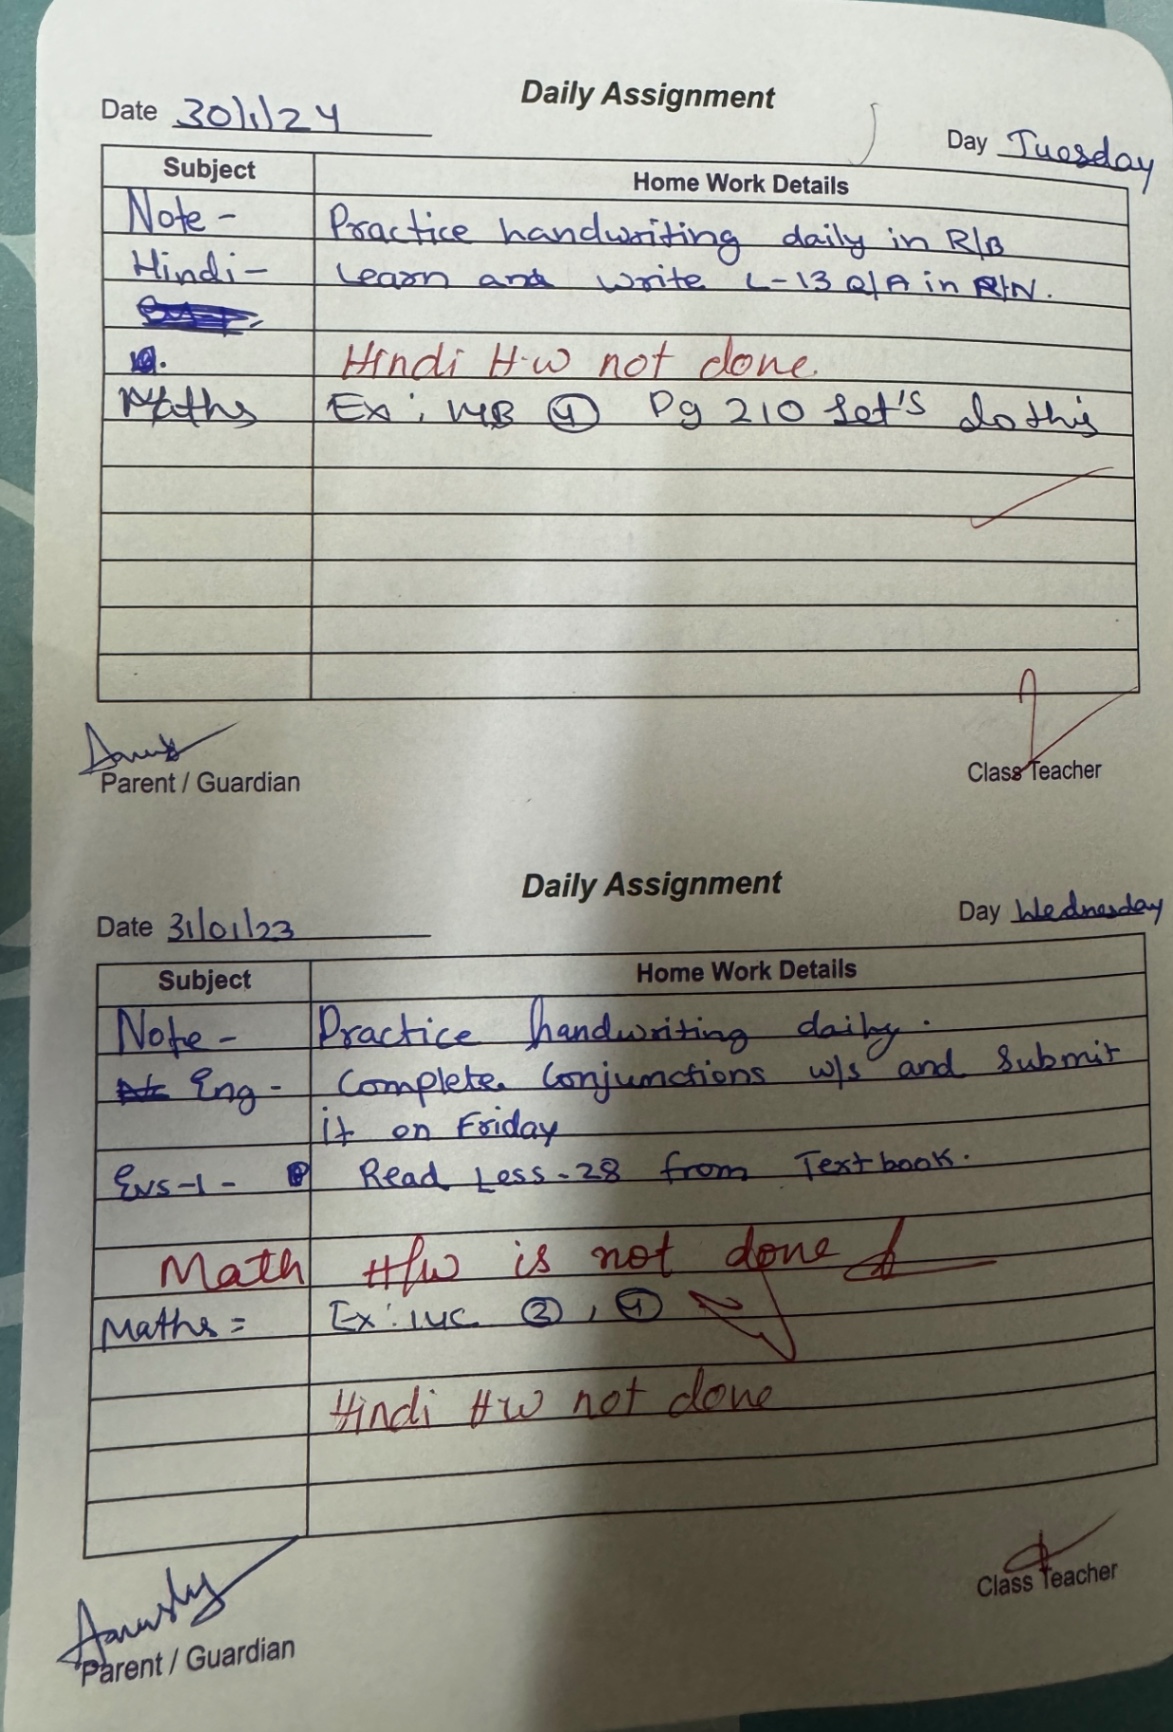 Daily Assignment
Date 30/1/24 Day Tuesday
Subject Home Work Details
Note - Practice handwriting daily in R/B
Hindi - Learn and write L-13 Q/A in R/N.
Hindi H.w not done
Maths Ex: 14B ④ Pg 210 Let's do this
Parent / Guardian Class Teacher
Daily Assignment
Date 31/01/23 Day Wednesday
Subject Home Work Details
Note - Practice handwriting daily.
Eng - Complete Conjunctions w/s and Submit
it on Friday
Evs-1 - Read Less-28 from Textbook.
Math H/w is not done
Maths = Ex: 14C ③, ④
Hindi HW not done
Parent / Guardian Class Teacher